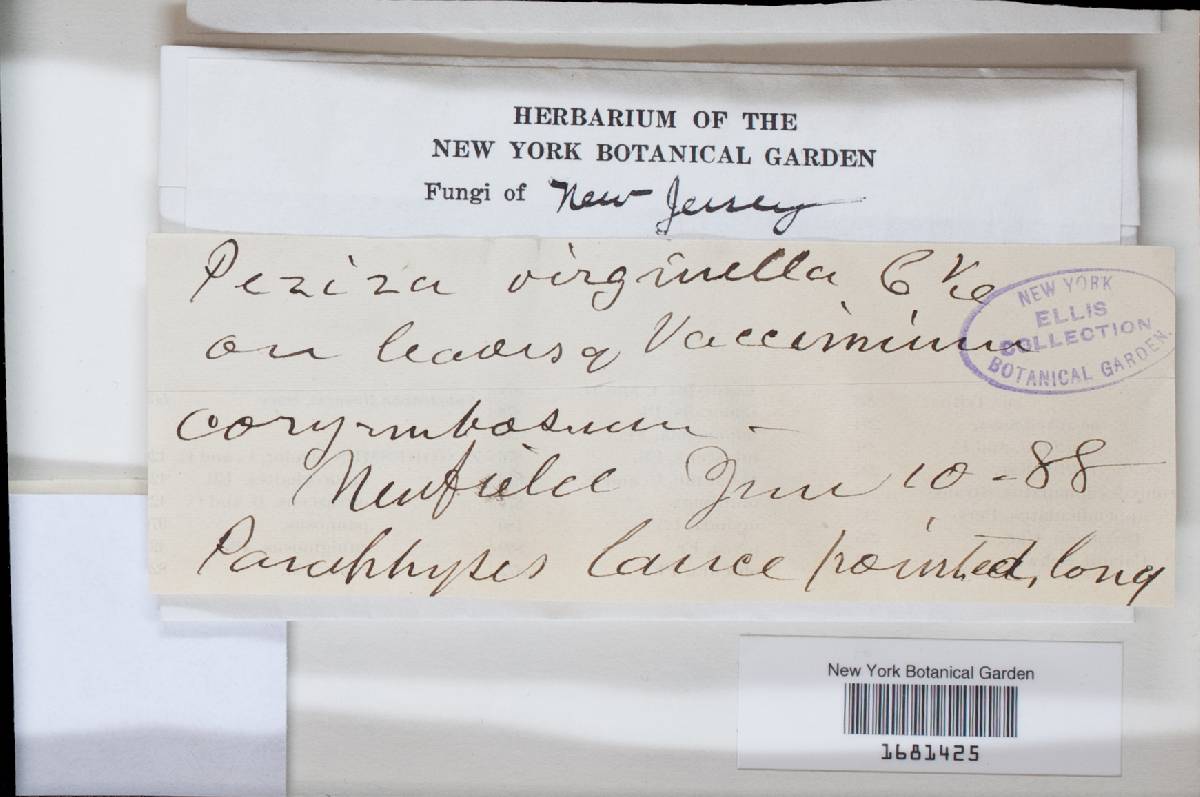 HERBARIUM OF THE
NEW YORK BOTANICAL GARDEN
Fungi of New Jersey
Peziza virginella Cke
on leaves of Vaccinium
corymbosum -
Newfield June 10 - 88
Paraphyses lance pointed, long
NEW YORK
ELLIS
COLLECTION
BOTANICAL GARDEN.
New York Botanical Garden
1681425